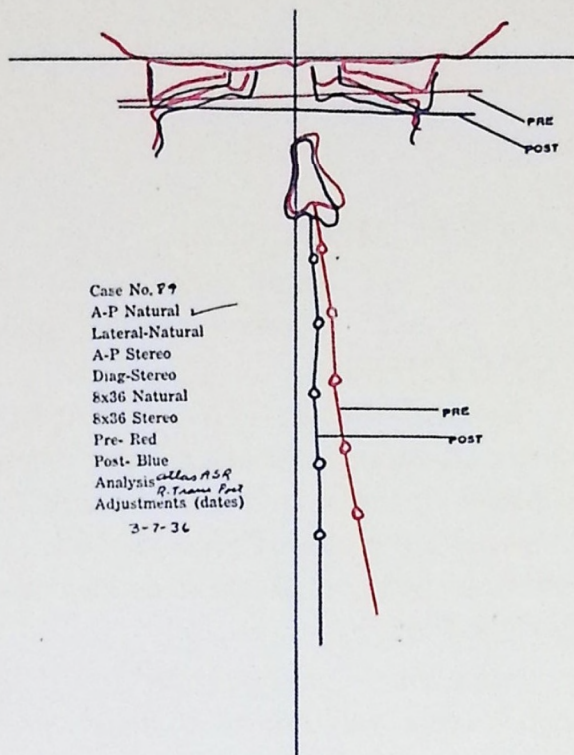 PRE
POST
Case No. 89
A-P Natural ✓
Lateral-Natural
A-P Stereo
Diag-Stereo
8x36 Natural
8x36 Stereo
PRE
Pre- Red
POST
Post- Blue
Analysis atlas ASR
R. Trans Post
Adjustments (dates)
3-7-36